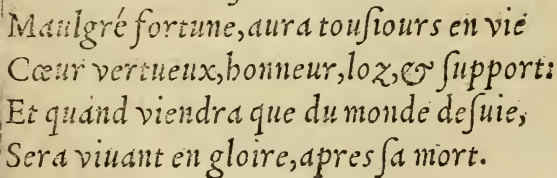 Maulgré fortune,aura touſiours en vie
Cœur vertueux,honneur,loz,& ſupport:
Et quand viendra que du monde deſuie,
Sera viuant en gloire,apres ſa mort.